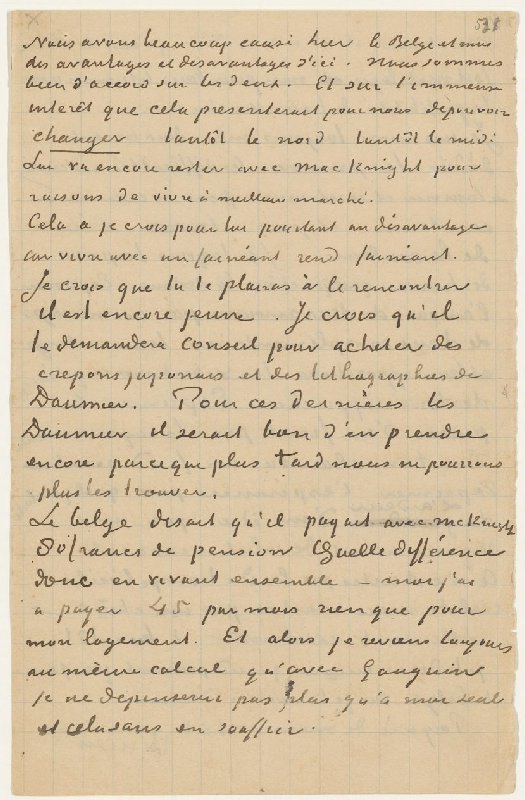 531
Nous avons beaucoup causé hier le Belge et moi
des avantages et desavantages d'ici. Nous sommes
bien d'accord sur les deux. Et sur l'immense
interêt que cela presenterait pour nous de pouvoir
changer tantôt le nord tantôt le midi.
Lui va encore rester avec MacKnight pour
raisons de vivre à meilleur marché.
Cela a je crois pour lui pourtant un désavantage
car vivre avec un fainéant rend fainéant.
Je crois que tu te plairas à le rencontrer
il est encore jeune. Je crois qu'il
te demandera conseil pour acheter des
crepons japonais et des lithographies de
Daumier. Pour ces dernières les
Daumier il serait bon d'en prendre
encore parceque plus tard nous ne pourrons
plus les trouver.
Le belge disait qu'il payait avec McKnight
80 francs de pension Quelle différence
donc en vivant ensemble – moi j'ai
à payer 45 par mois rien que pour
mon logement. Et alors je reviens toujours
au même calcul qu'avec Gauguin
je ne depenserai pas plus qu'à moi seul
et cela sans en souffrir.